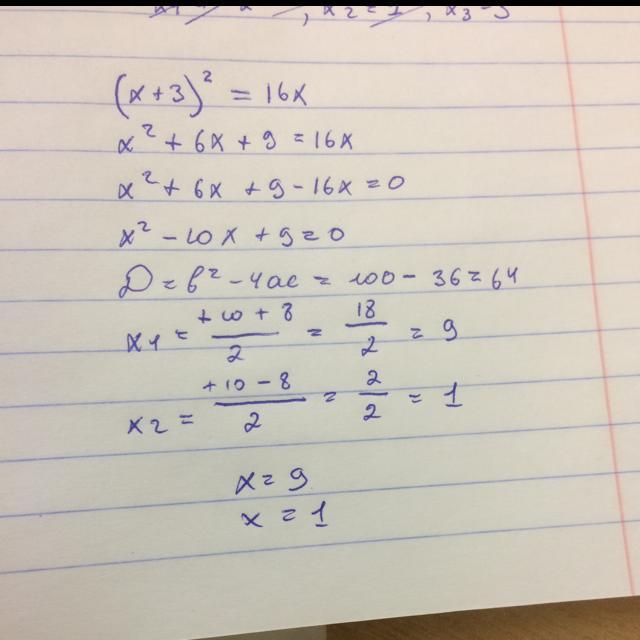 , x2 = 1, x3 = 9
(x+3)² = 16x
x² + 6x + 9 = 16x
x² + 6x + 9 - 16x = 0
x² - 10x + 9 = 0
D = b² - 4ac = 100 - 36 = 64
x1 = (+10 + 8)/2 = 18/2 = 9
x2 = (+10 - 8)/2 = 2/2 = 1
x = 9
x = 1